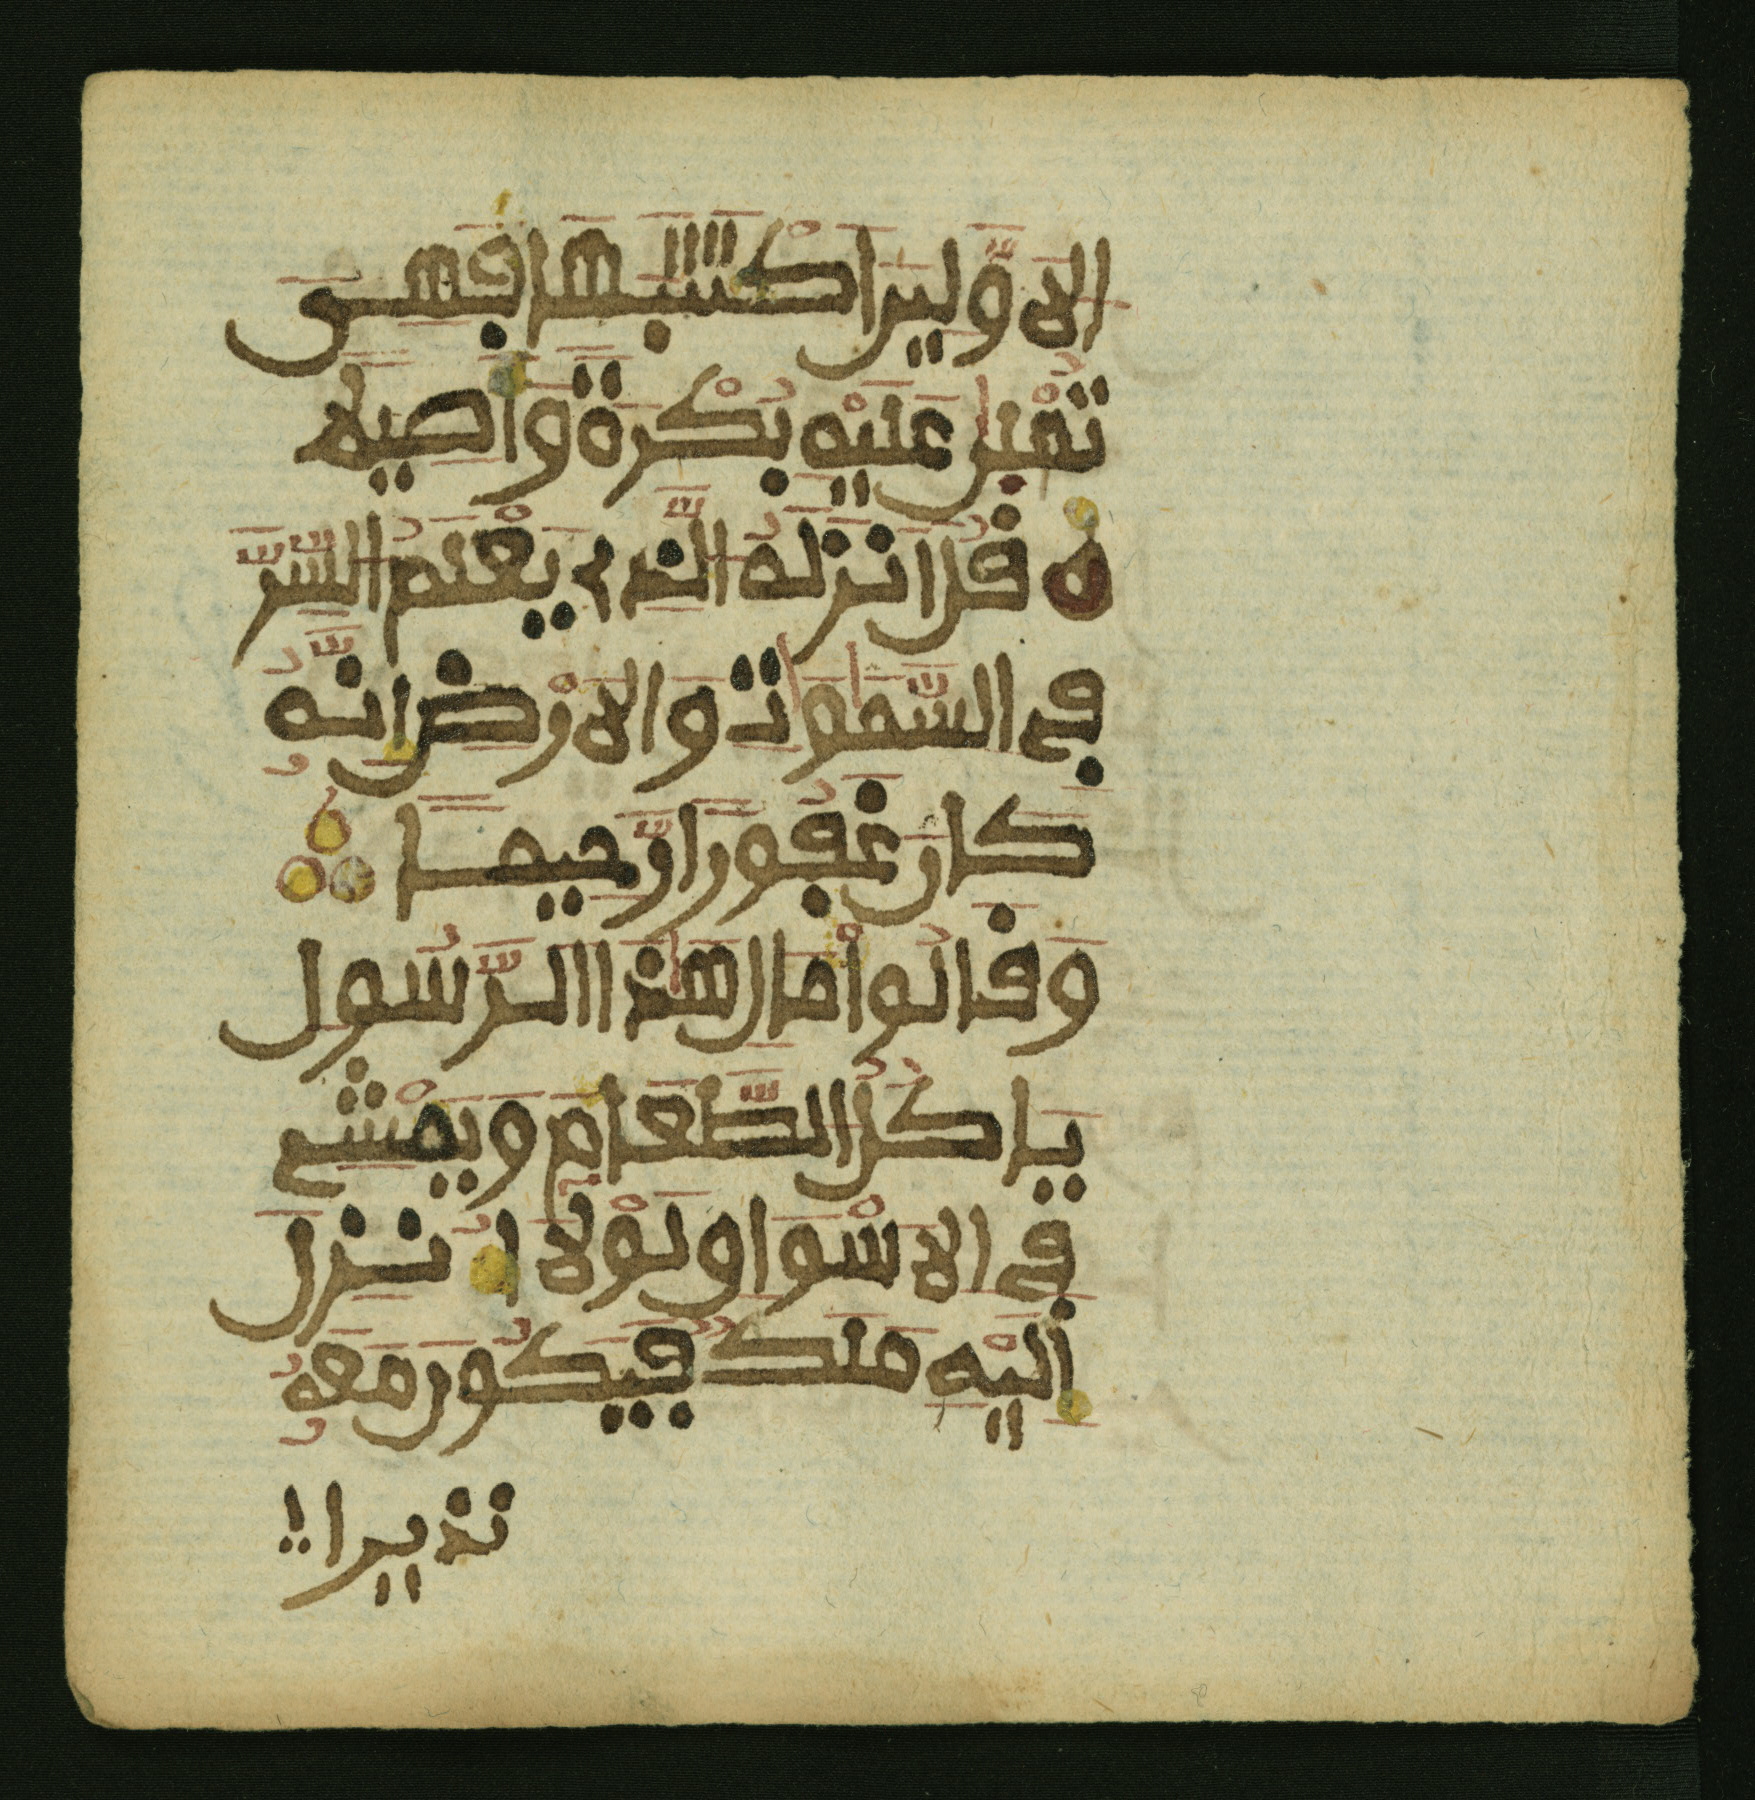 الاوّلين اكتتبها فهى
تُمْلى عليْه بُكْرة وأصيلا
ه قُل انزلهُ الّذى يعْلمُ السّرّ
فى السّموت والارْض انّهُ
كان غفُورا رّحيما
وقالُوا مال هذا الرّسُول
ياكُلُ الطّعام ويمْشى
فى الاسْواق لوْلا أُنزل
إليْه ملكٌ فيكُون معهُ
نذيرا